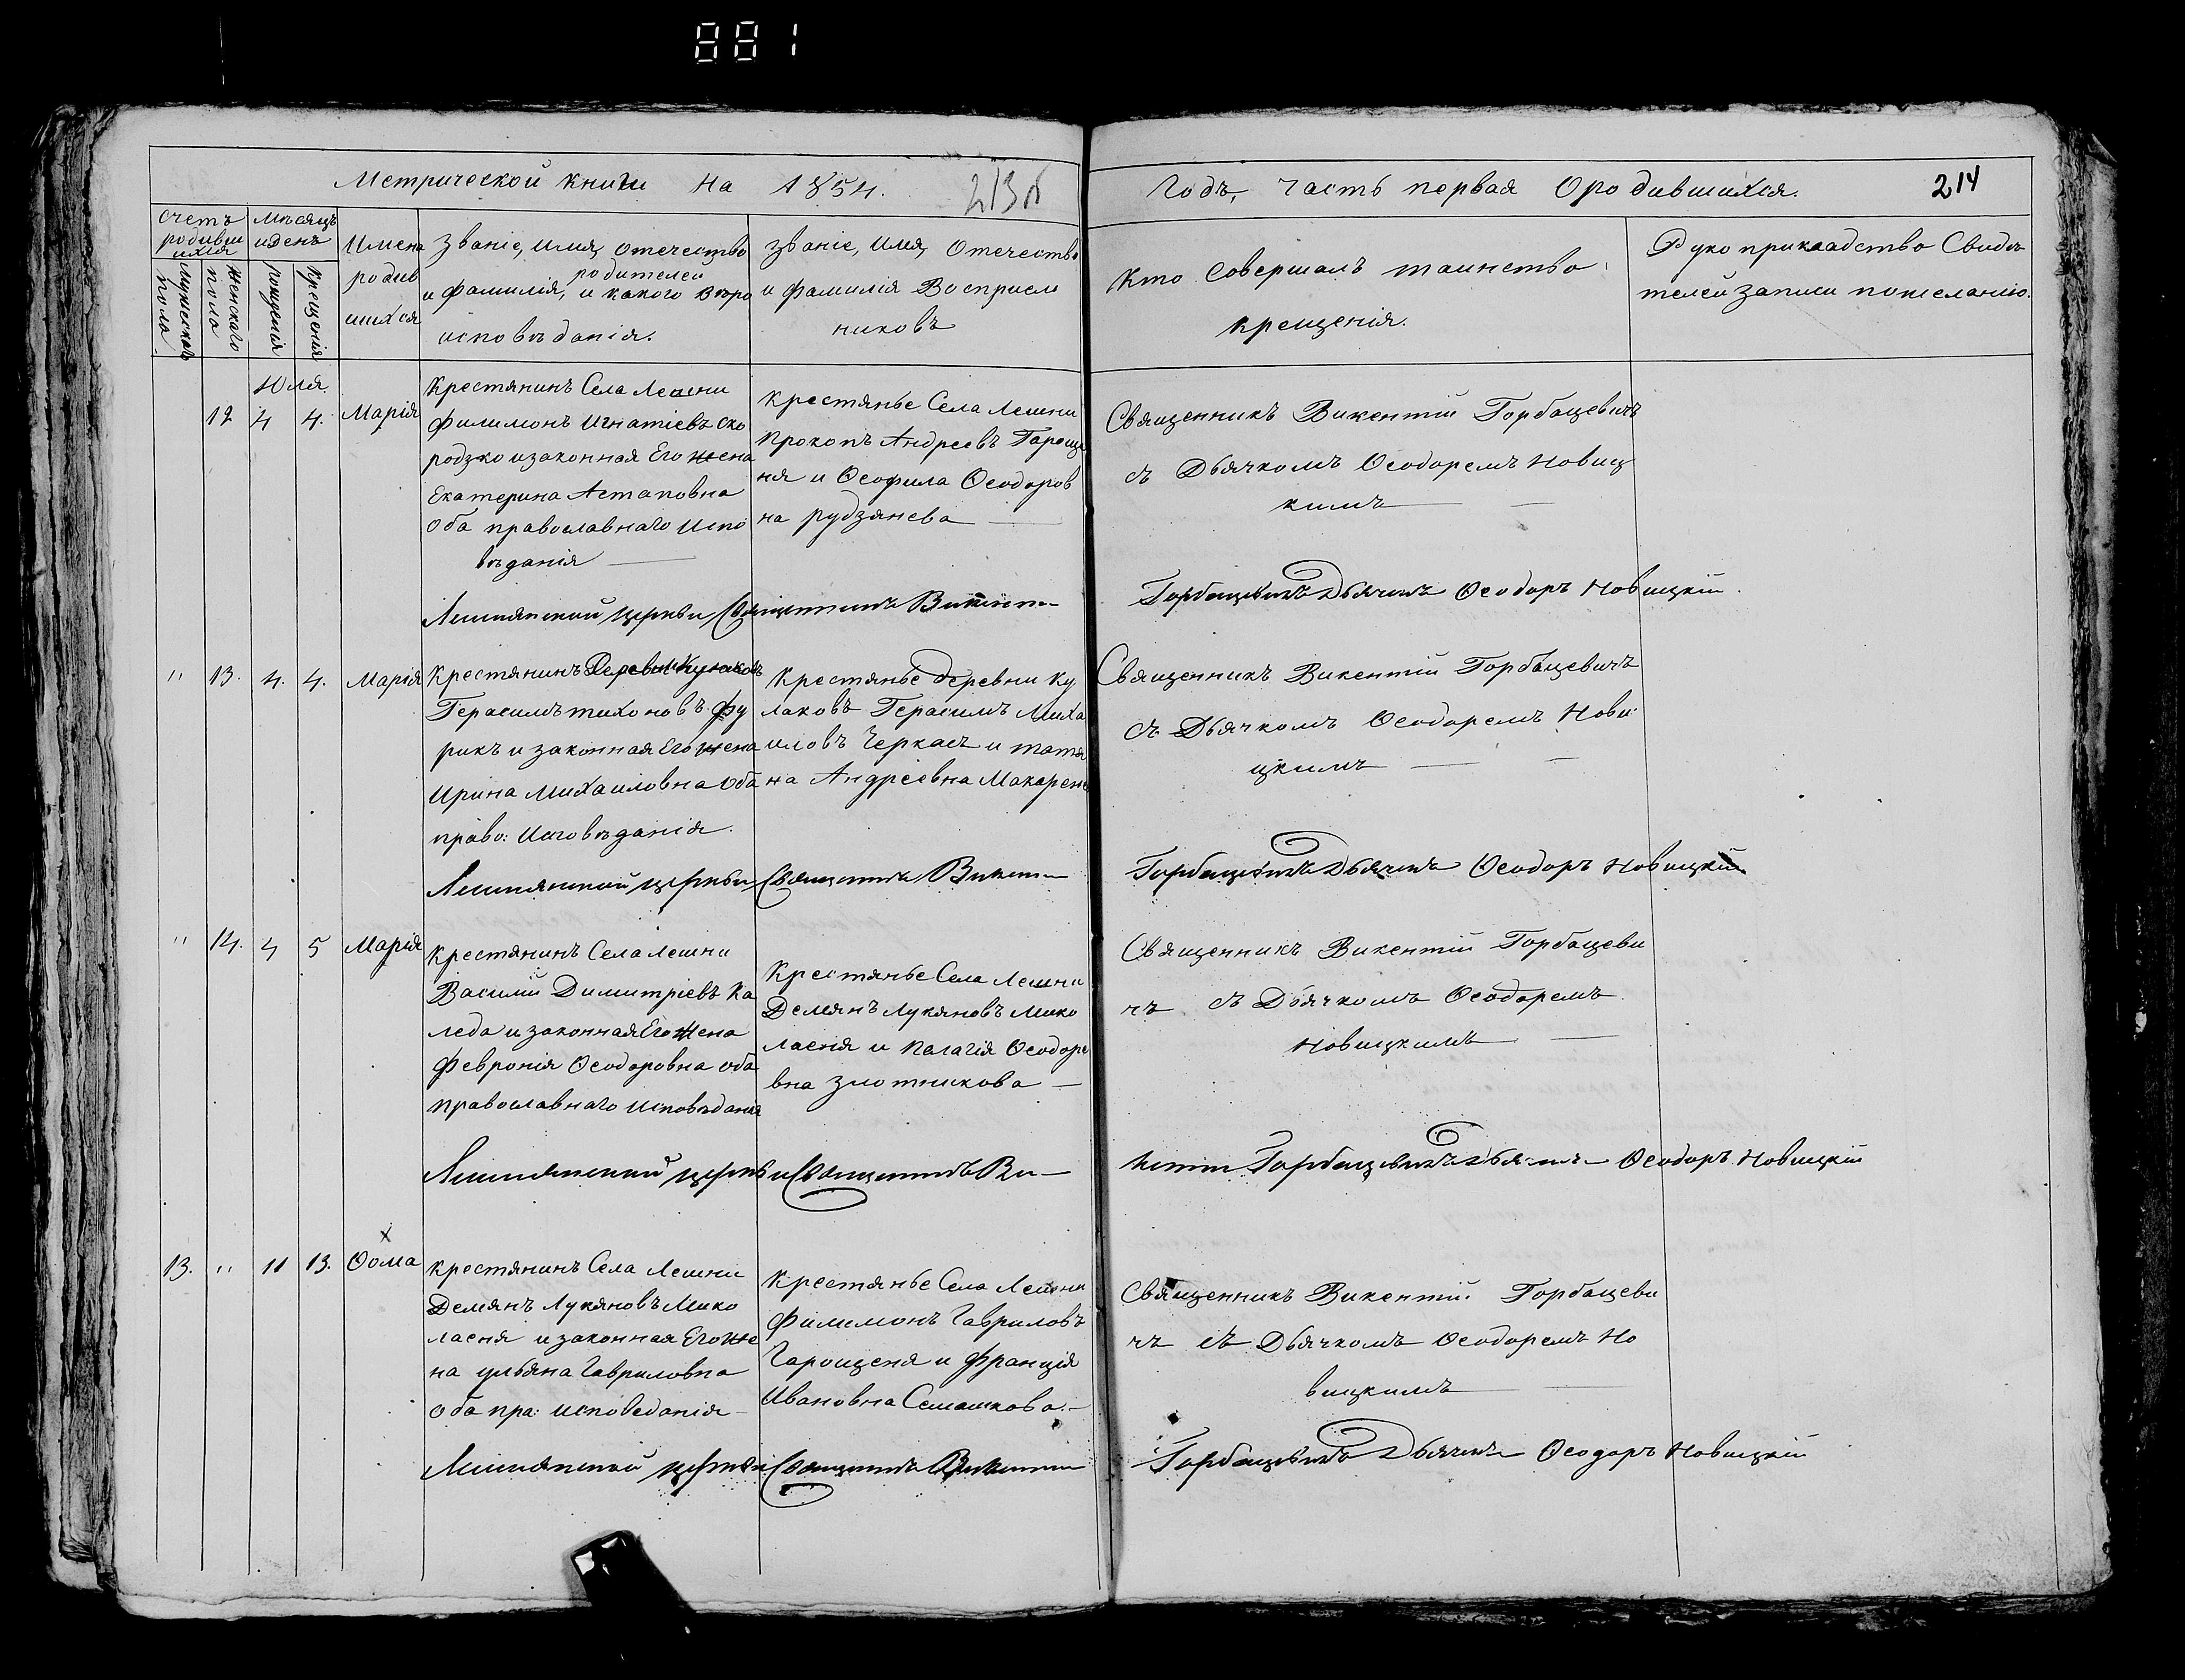 881
Метрической книги на 1854.
213об
Годъ, часть первая Ородившихся.
214
счетъ родивши ихся
Мужескаго пола.
Женскаго пола
мѣсяцъ иденъ
рожденія
крещенія
Имена родив шихся
Званіе, имя, отечество
родителей
и фамилія, и какого вѣро
исповѣданія.
званіе, имя, Отечество
и фамилія Восприем
никовъ
Кто Совершалъ таинство
крещенія.
Рукоприкладство Свидѣ
телей записи пожеланію.
Юля.
12 4 4. Марія
Крестянинъ Села Лешни
Филимонъ Игнатіевъ Ско
родзко изаконная Его жена
Екатерина Астаповна
Оба православнаго Испо
вѣданія
Крестянье Села Лешни
Прокопъ Андреевъ Гароще
ня и Ѳеофила Ѳеодоров
на рудзянева
Священникъ Викентій Горбацевичъ
съ Дьячкомъ Ѳеодоремъ Новиц
кимъ
Лешнянской церкви Священникъ Викент
Горбацевичъ Дьячекъ Ѳеодоръ Новицкій.
" 13. 4. 4. Марія
Крестянинъ Деревни Кулаковъ
Герасимъ тихоновъ Фу
рикъ и законная Его жена
Ирина Михаиловна Оба
право: Исповѣданія.
Крестянье деревни Ку
лаковъ Герасимъ Миха
иловъ Черкасъ и татя
на Андреевна Макарен
Священникъ Викентій Горбацевичъ
съ Дьячкомъ Ѳеодоремъ Нови
цкимъ
Лешнянской церкви Священникъ Викент
Горбацевичъ Дьячекъ Ѳеодоръ Новицкій
" 14. 4 5 Марія
Крестянинъ Села Лешни
Василій Димитріевъ Ка
леда и законная Его Жена
Февронія Ѳеодоровна оба
православнаго Исповѣданія
Крестянье Села Лешни
Демянъ Лукяновъ Мико
ласня и Палагія Ѳеодоро
вна злотникова
Священникъ Викентій Горбацеви
чъ съ Дьячкомъ Ѳеодоремъ
Новицкимъ
Лешнянской церкви Священникъ Ви
кентій Горбацевичъ Дьячекъ Ѳеодоръ Новицкій
х
13. " 11 13. Ѳома
Крестянинъ Села Лешни
Демянъ Лукяновъ Мико
ласня и законная Его же
на ульяна Гавриловна
Оба пра: исповеданія
Крестянье Села Лешни
Филимонъ Гавриловъ
Гарощеня и Франція
Ивановна Семашкова.
Священникъ Викентій Горбацеви
чъ съ Дьячкомъ Ѳеодоремъ Но
вицкимъ
Лешнянской церкви Священникъ Викентій
Горбацевичъ Дьячекъ Ѳеодоръ Новицкій